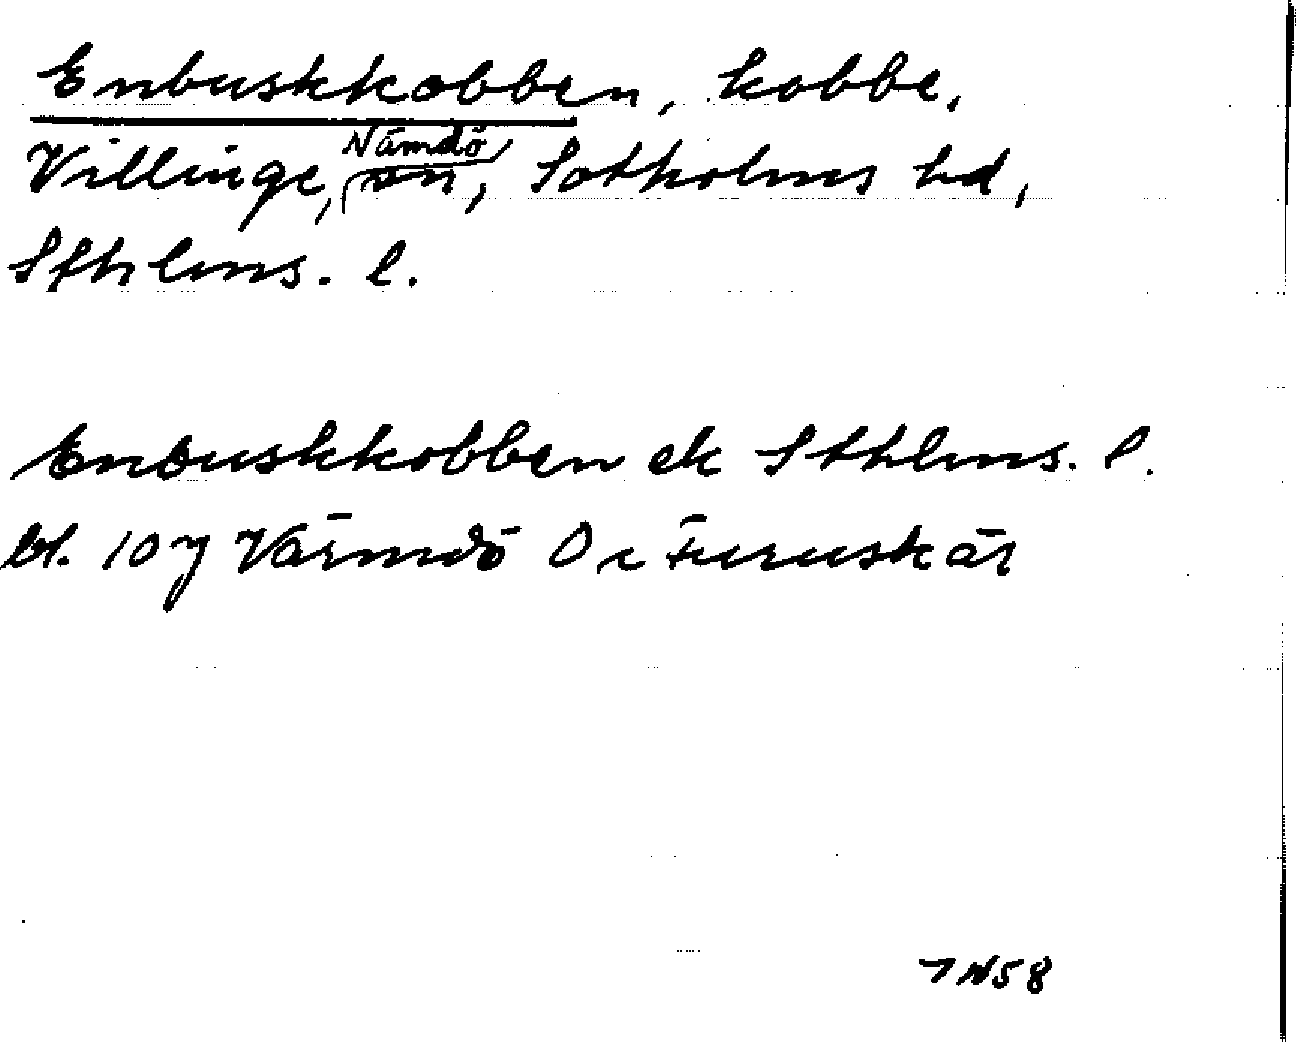 Enbuskkobben, kobbe,
Villinge, Nämdö sn, Sotholms hd,
Sthlms. l.
Enbuskkobben ek Sthlms. l.
bl. 107 Värmdö Furuskär
7N58